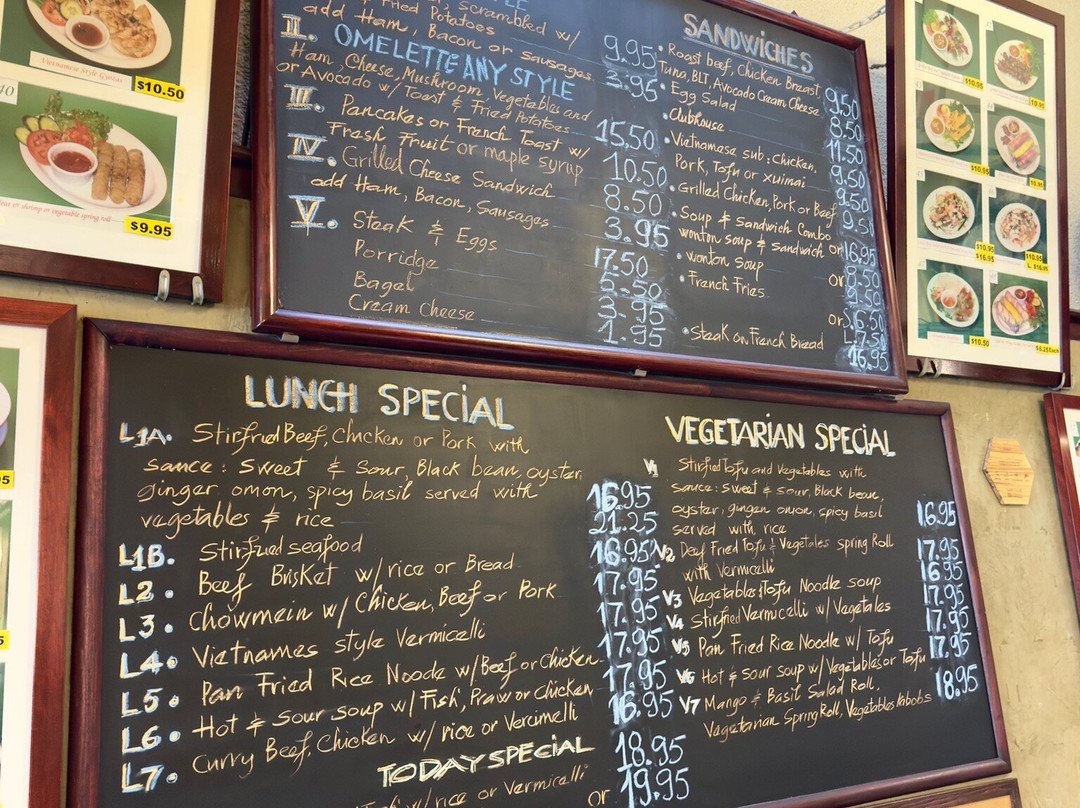 Vietnamese Style Gyozas
$10.50
$9.95
scrambled w/
Fried Potatoes 9.95
add Ham, Bacon or sausages 3.95
II. OMELETTE ANY STYLE
Ham, Cheese, Mushroom, Vegetables and
or Avocado w/ Toast & Fried Potatoes 15.50
III. Pancakes or French Toast w/
Fresh Fruit or maple syrup 10.50
IV. Grilled Cheese Sandwich 8.50
add Ham, Bacon, Sausages 3.95
V. Steak & Eggs 17.50
Porridge 5.50
Bagel 3.95
Cream Cheese 1.95
SANDWiCHES
• Roast beef, Chicken Breast
Tuna, BLT, Avocado Cream Cheese 9.50
• Egg Salad 8.50
• Clubhouse 11.50
• Vietnamese sub: Chicken,
Pork, Tofu or xuimai 9.50
• Grilled Chicken, Pork or Beef 9.50
• Soup & Sandwich Combo
wonton soup & Sandwich or 16.95
• wonton soup or 8.50
• French Fries or
• Steak on French Bread 16.95
LUNCH SPECiAL
L1A. Stirfried Beef, Chicken or Pork with
sauce: Sweet & Sour, Black bean, oyster,
ginger onion, spicy basil served with
vegetables & rice 16.95
L1B. Stirfried seafood 21.25
L2. Beef BrisKet w/ rice or Bread 16.95
L3. Chowmein w/ Chicken, Beef or Pork 17.95
L4. Vietnames style Vermicelli 17.95
L5. Pan Fried Rice Noodle w/ Beef or Chicken 17.95
L6. Hot & Sour soup w/ Fish, Prawn or chicken 17.95
L7. Curry Beef, Chicken w/ rice or Vercimelli 16.95
TODAY SPECiAL
w/ rice or Vermicelli 18.95
or 19.95
VEGETARiAN SPECiAL
V1 Stirfried Tofu and Vegetables with
sauce: Sweet & Sour, Black bean,
oyster, ginger onion, spicy basil
served with rice 16.95
V2 Deep Fried Tofu & Vegetales spring Roll
with Vermicelli 17.95
V3 Vegetables & Tofu Noodle soup 16.95
V4 Stirfried Vermicelli w/ Vegetales 17.95
V5 Pan Fried Rice Noodle w/ Tofu 17.95
V6 Hot & Sour soup w/ Vegetables or Tofu 17.95
V7 Mango & Basil Salad Roll,
Vegetarian Spring Roll, Vegetables kabobs 18.95
$10.95
$10.95
$10.95
$16.95
$10.95
L $16.95
$10.50
$6.25 Each